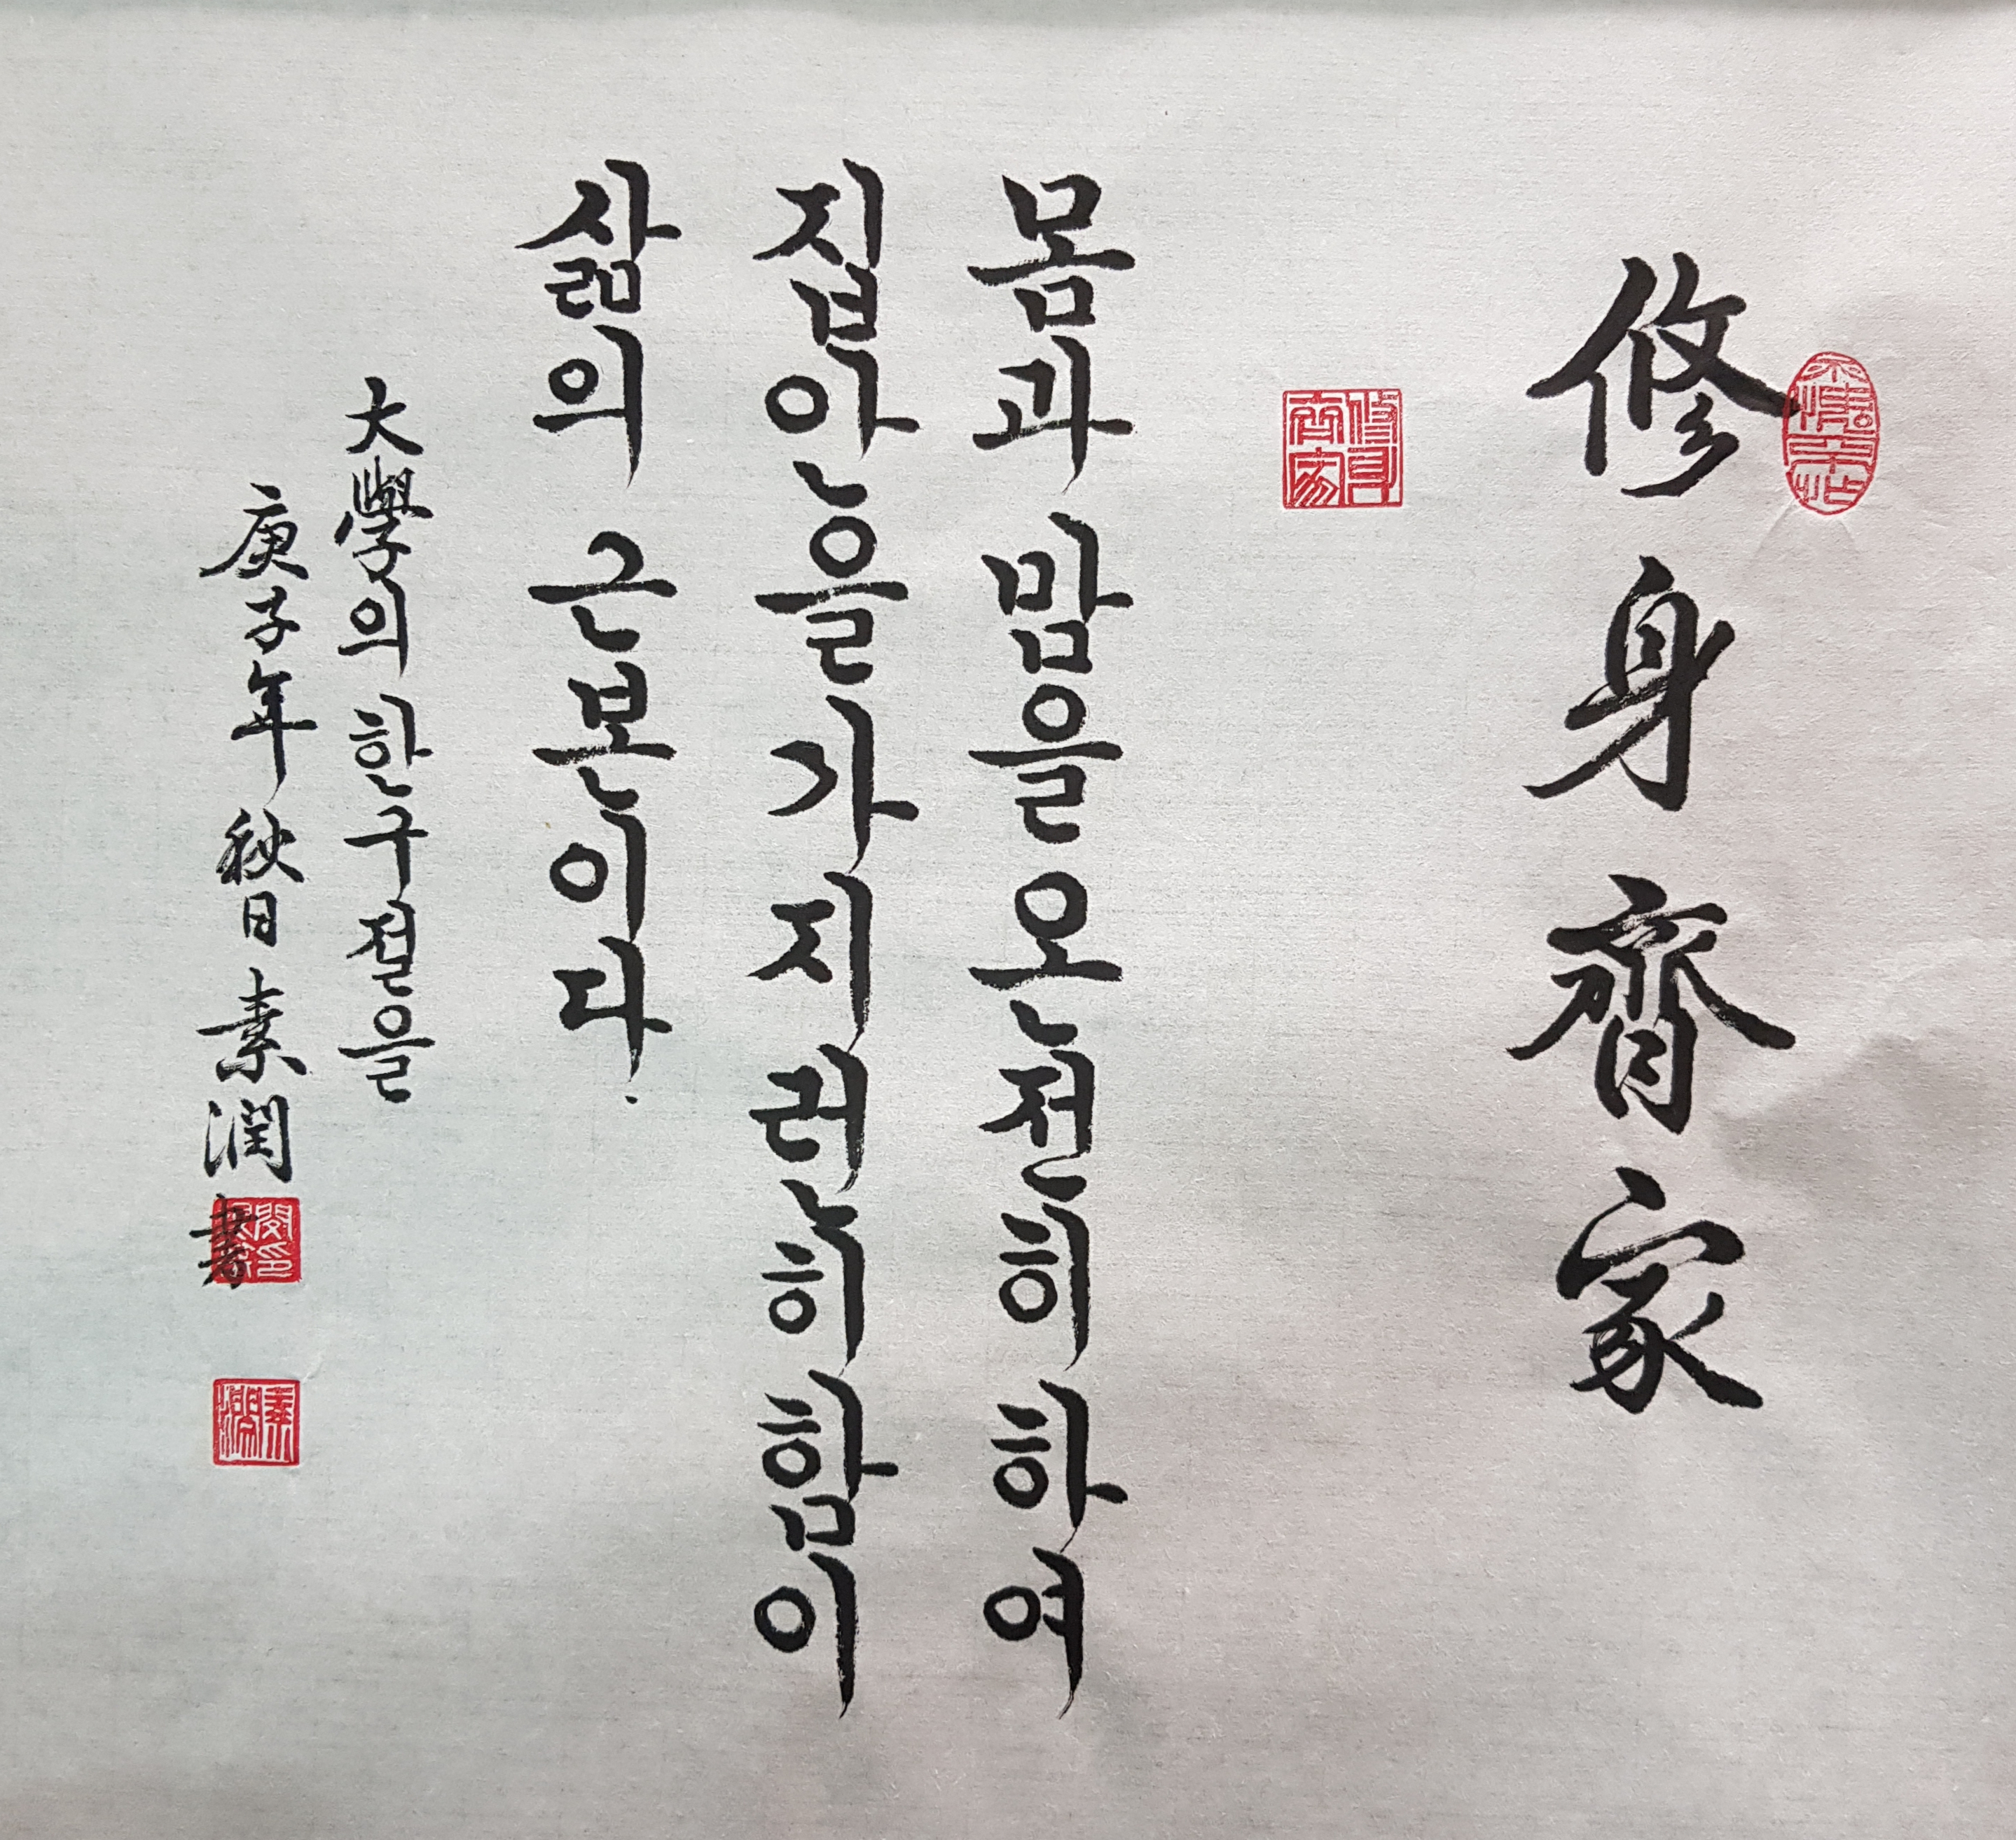 修身齊家
修身齊家
몸과 맘을 온전히 하여
집안을 가지런히 함이
삶의 근본이다.
大學의 한구절을
庚子年 秋日 素潤 書
素潤